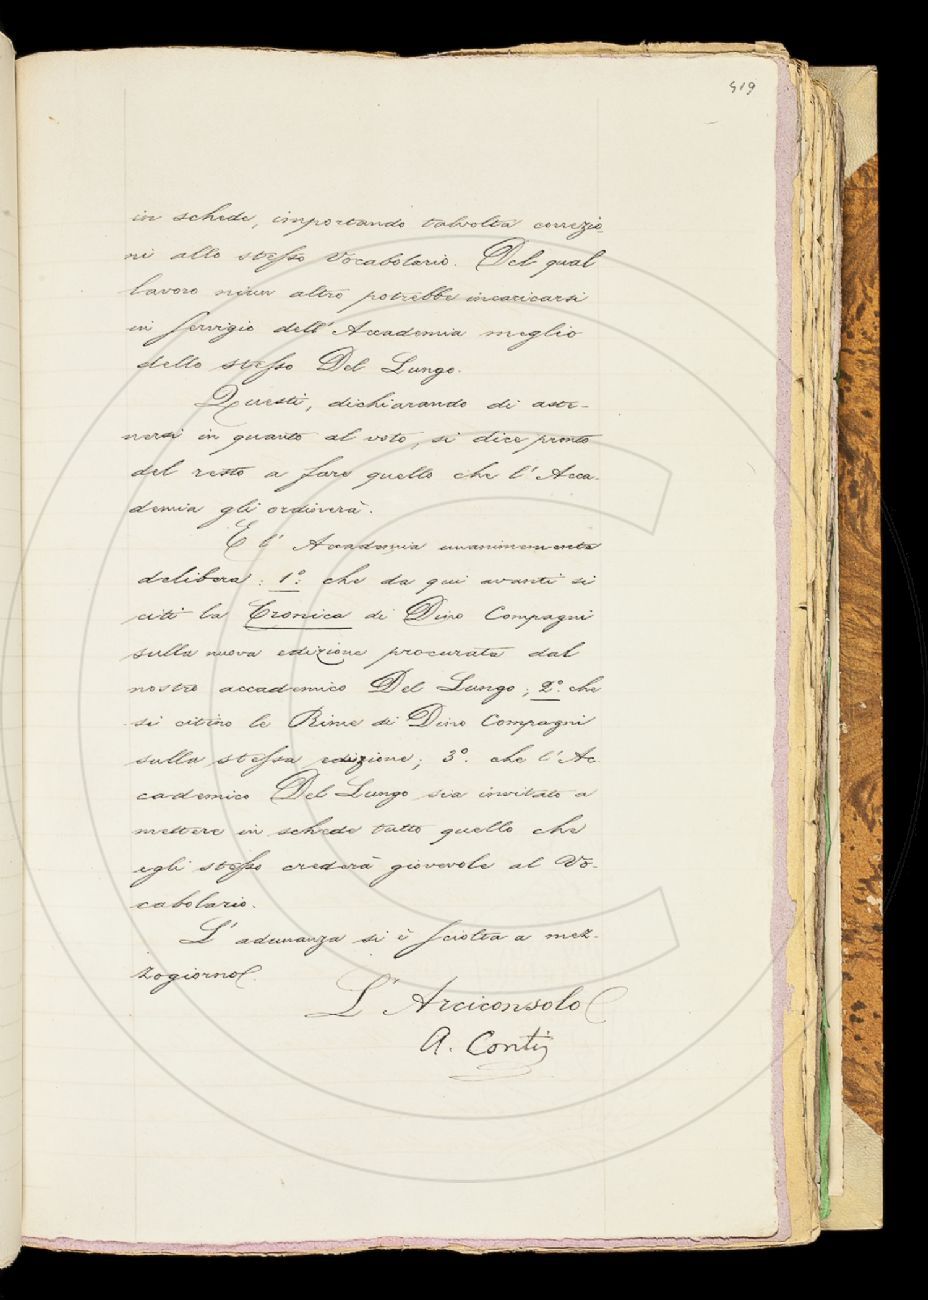 419
in schede, importando talvolta correzio-
ni allo stesso Vocabolario. Del qual
lavoro niun altro potrebbe incaricarsi
in servigio dell'Accademia meglio
dello stesso Del Lungo.
Questi, dichiarando di aste-
nersi in quanto al voto, si dice pronto
del resto a fare quello che l'Acca-
demia gli ordinerà.
E l'Accademia unanimemente
delibera: 1º. che da qui avanti si
citi la Cronica di Dino Compagni
sulla nuova edizione procurata dal
nostro accademico Del Lungo; 2º. che
si citino le Rime di Dino Compagni
sulla stessa edizione; 3º. che l'Ac
cademico Del Lungo sia invitato a
mettere in schede tutto quello che
egli stesso crederà giovevole al Vo-
cabolario.
L'adunanza si è sciolta a mez-
zogiorno.
L'Arciconsolo
A. Conti